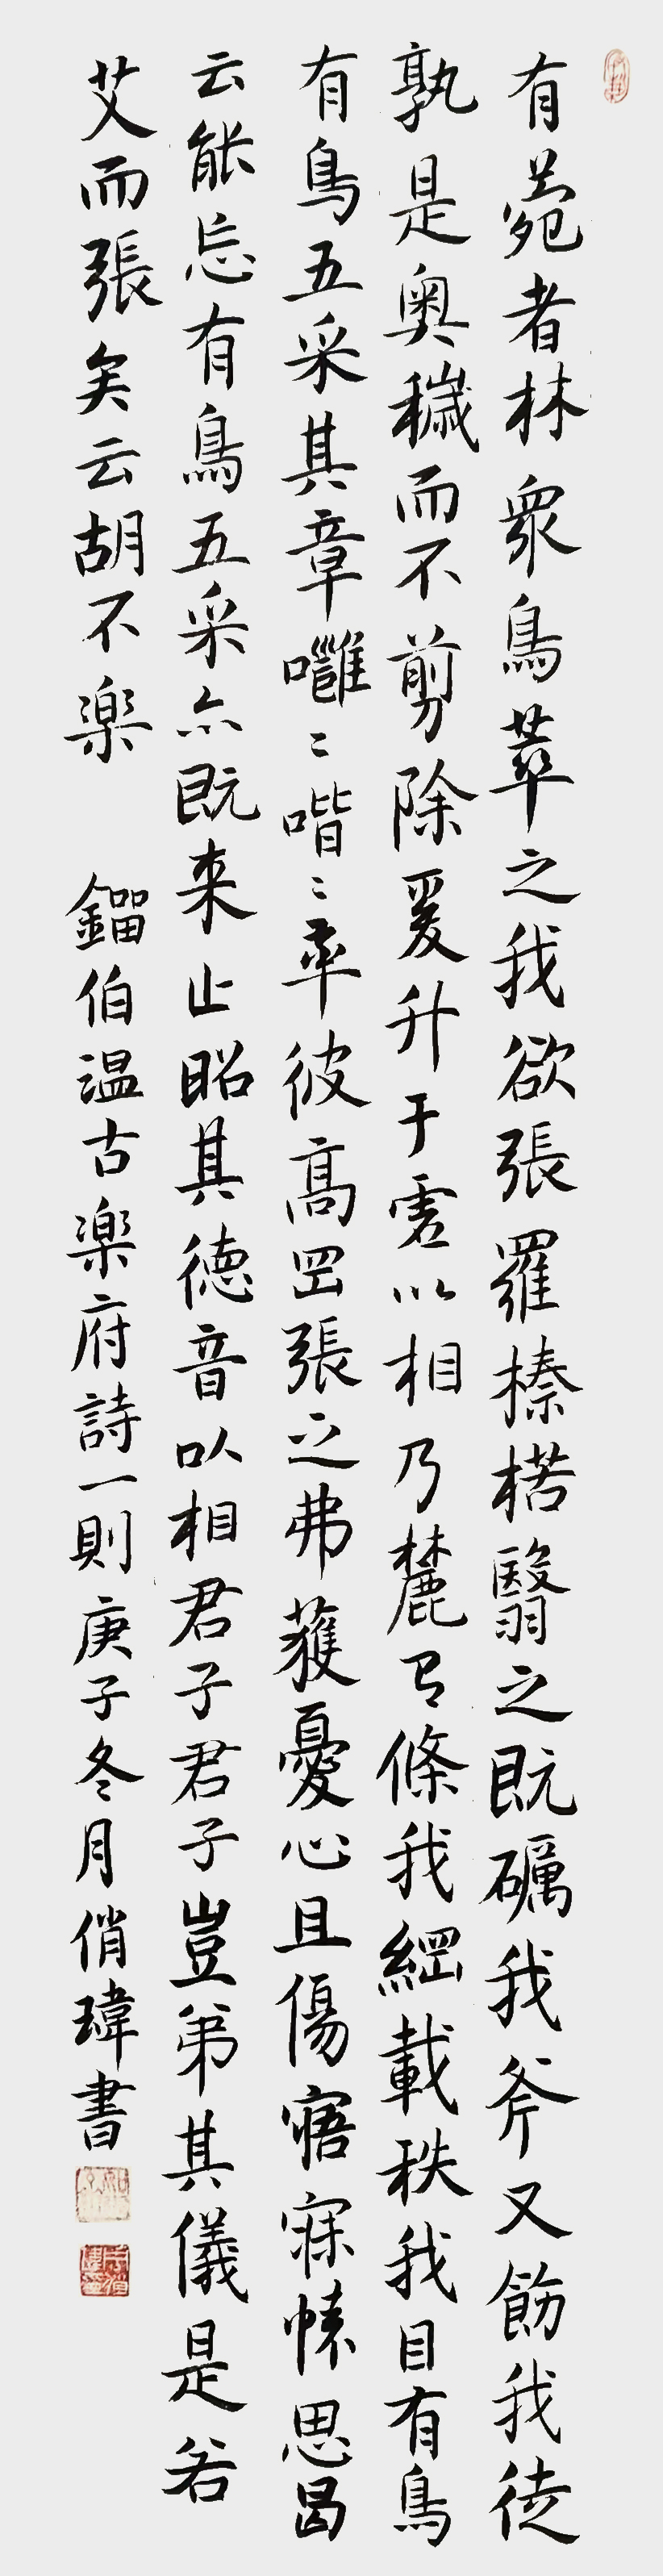 有菀者林眾鳥萃之我欲張羅榛楛翳之既礪我斧又飭我徒
孰是奧穢而不剪除爰升于虗以相乃麓有條我綱載秩我目有鳥
有鳥五采其章嗈〻喈〻率彼高罡張之弗獲憂心且傷寤寐愫思曷
云能忘有鳥五采亦既来止昭其德音以相君子君子豈弟其儀是若
艾而張矣云胡不楽 鎦伯温古楽府詩一則庚子冬月俏瑋書